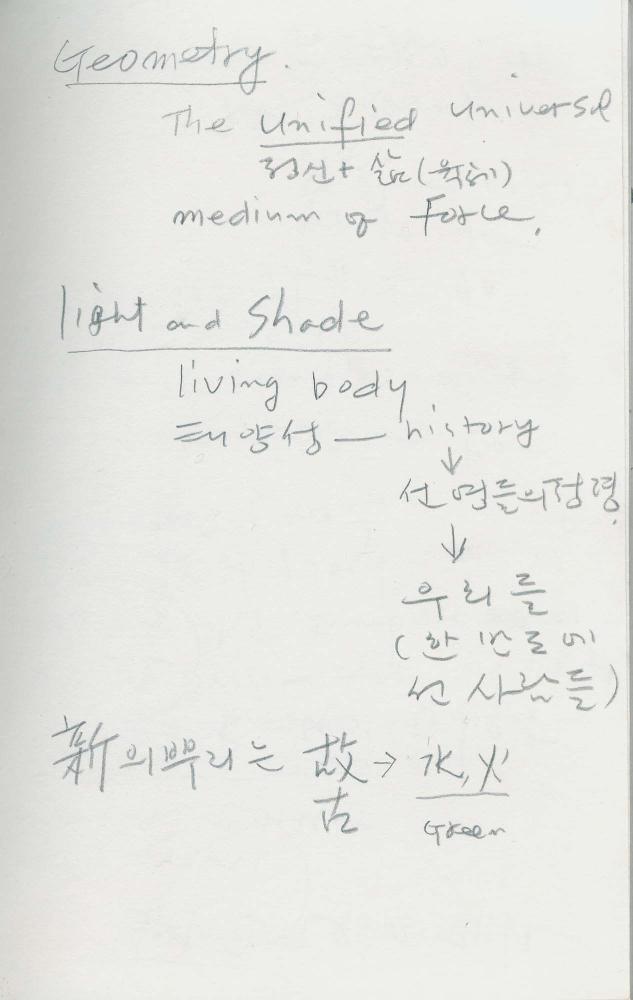 Geometry.
The unified universal
정신 + 삶 (육체)
medium of Force.
light and Shade
living body
태양성 — history
↓
선열들의 정령
↓
우리들
(한반도에
선 사람들)
新의 뿌리는 故 → 水, 火
古 Green